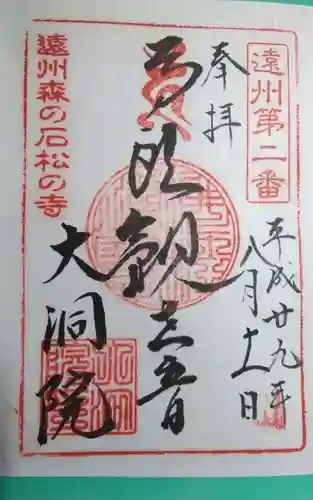 遠州第二番
奉拝
平成廿九年
八月 日
馬頭観世音
遠州森の石松の寺
大洞院